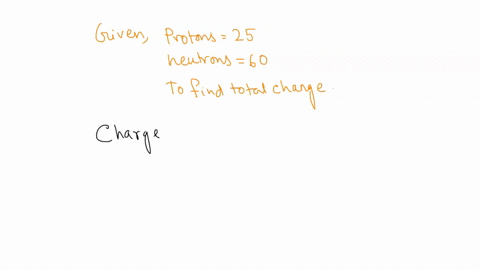 Given, Protons = 25
neutrons = 60
To find total charge.
Charge